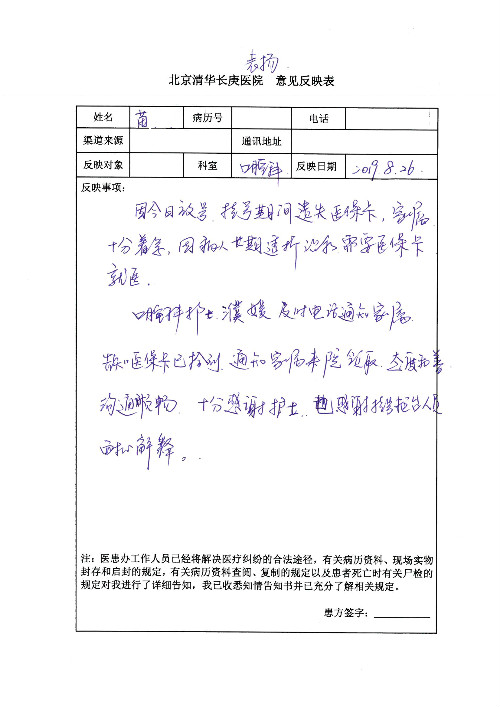 表扬
北京清华长庚医院 意见反映表
姓名 苗 病历号 电话
渠道来源 通讯地址
反映对象 科室 口腔科 反映日期 2019.8.26.
反映事项:
因今日放号、挂号期间遗失医保卡，家属
十分着急，因病人长期透析 必须需要医保卡
就医。
口腔科护士 濮媛 及时电话通知家属
医保卡已捡到 通知家属来院领取 态度和善
沟通顺畅 十分感谢护士 也感谢 人员
耐心解释。
注：医患办工作人员已经将解决医疗纠纷的合法途径，有关病历资料、现场实物
封存和启封的规定，有关病历资料查阅、复制的规定以及患者死亡时有关尸检的
规定对我进行了详细告知，我已收悉知情告知书并已充分了解相关规定。
患方签字：